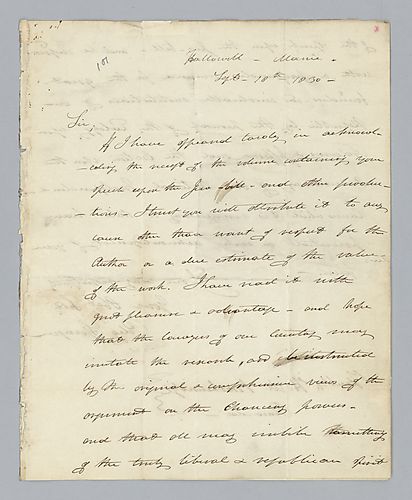 101
Hallowell - Maine -
Sept - 18th 1830 -
Sir,
If I have appeared tardy in acknowl-
-edging the receipt of the volume containing your
speech upon the Jew bill - and other produc-
-tions - I trust you will attribute it to any
cause other than want of respect for the
Author or a due estimate of the value
of the work. I have read it with
great pleasure & advantage - and hope
that the lawyers of our Country may
imitate the research, and be instructed
by the original & comprehensive views of the
argument on the Chancery powers -
and that all may imbibe something
of the truly liberal & republican spirit